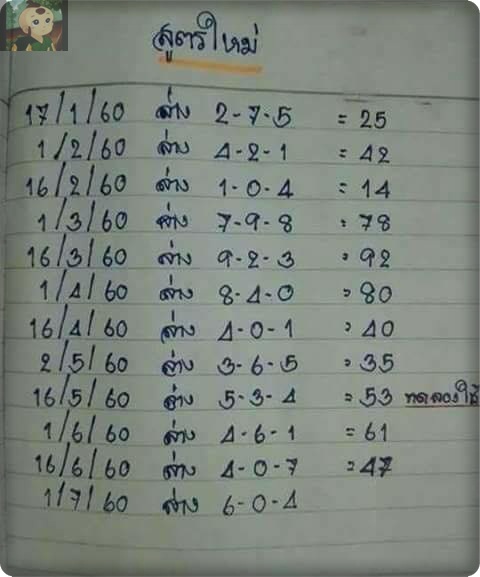 สูตรใหม่
17/1/60 ล่าง 2-7-5 = 25
1/2/60 ล่าง 4-2-1 = 42
16/2/60 ล่าง 1-0-4 = 14
1/3/60 ล่าง 7-9-8 = 78
16/3/60 ล่าง 9-2-3 = 92
1/4/60 ล่าง 8-4-0 = 80
16/4/60 ล่าง 4-0-1 = 40
2/5/60 ล่าง 3-6-5 = 35
16/5/60 ล่าง 5-3-4 = 53 ทดลองใช้
1/6/60 ล่าง 4-6-1 = 61
16/6/60 ล่าง 4-0-7 = 47
1/7/60 ล่าง 6-0-4